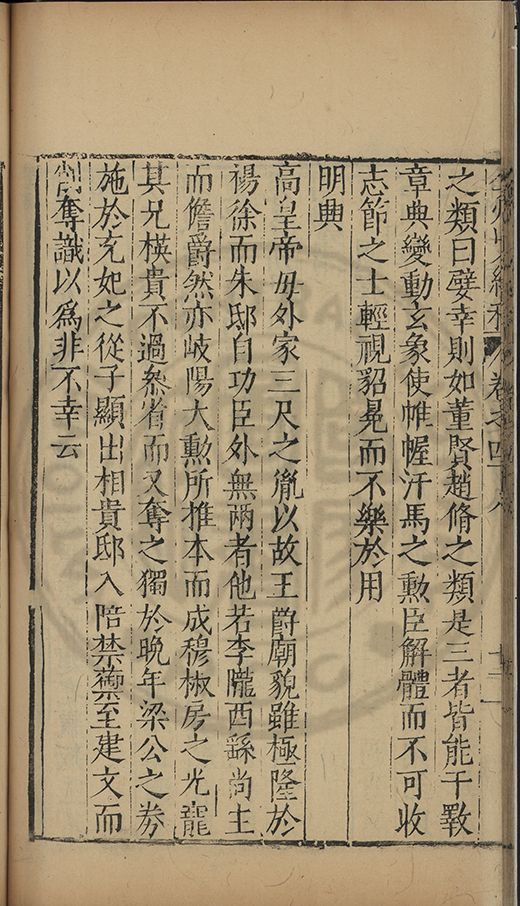 弇州史料 卷之四十八
之類曰嬖幸則如董賢趙脩之類是三者皆能干斁
章典變動玄象使帷幄汗馬之勲臣解體而不可收
志節之士輕視貂冕而不樂於用
明興
高皇帝毋外家三尺之胤以故王爵廟貌雖極隆於
楊徐而朱邸自功臣外無兩者他若李隴西繇尚主
而儋爵然亦岐陽大勲所推本而成穆椒房之光寵
其兄模貴不過叅省而又奪之獨於晩年梁公之券
施於充妃之從子顯出相貴邸入陪禁臠至建文而
削奪識以爲非不幸云